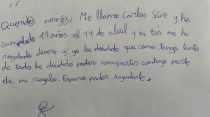 Querid@ amig@: Me llamo Carlos Sixt y he
cumplido 11 años el 14 de abril y mi tía me ha
regalado dinero y yo he decidido que como tengo
de todo he decidido poder compartir contigo parte
de mi regalo. Espero poder ayudarte.